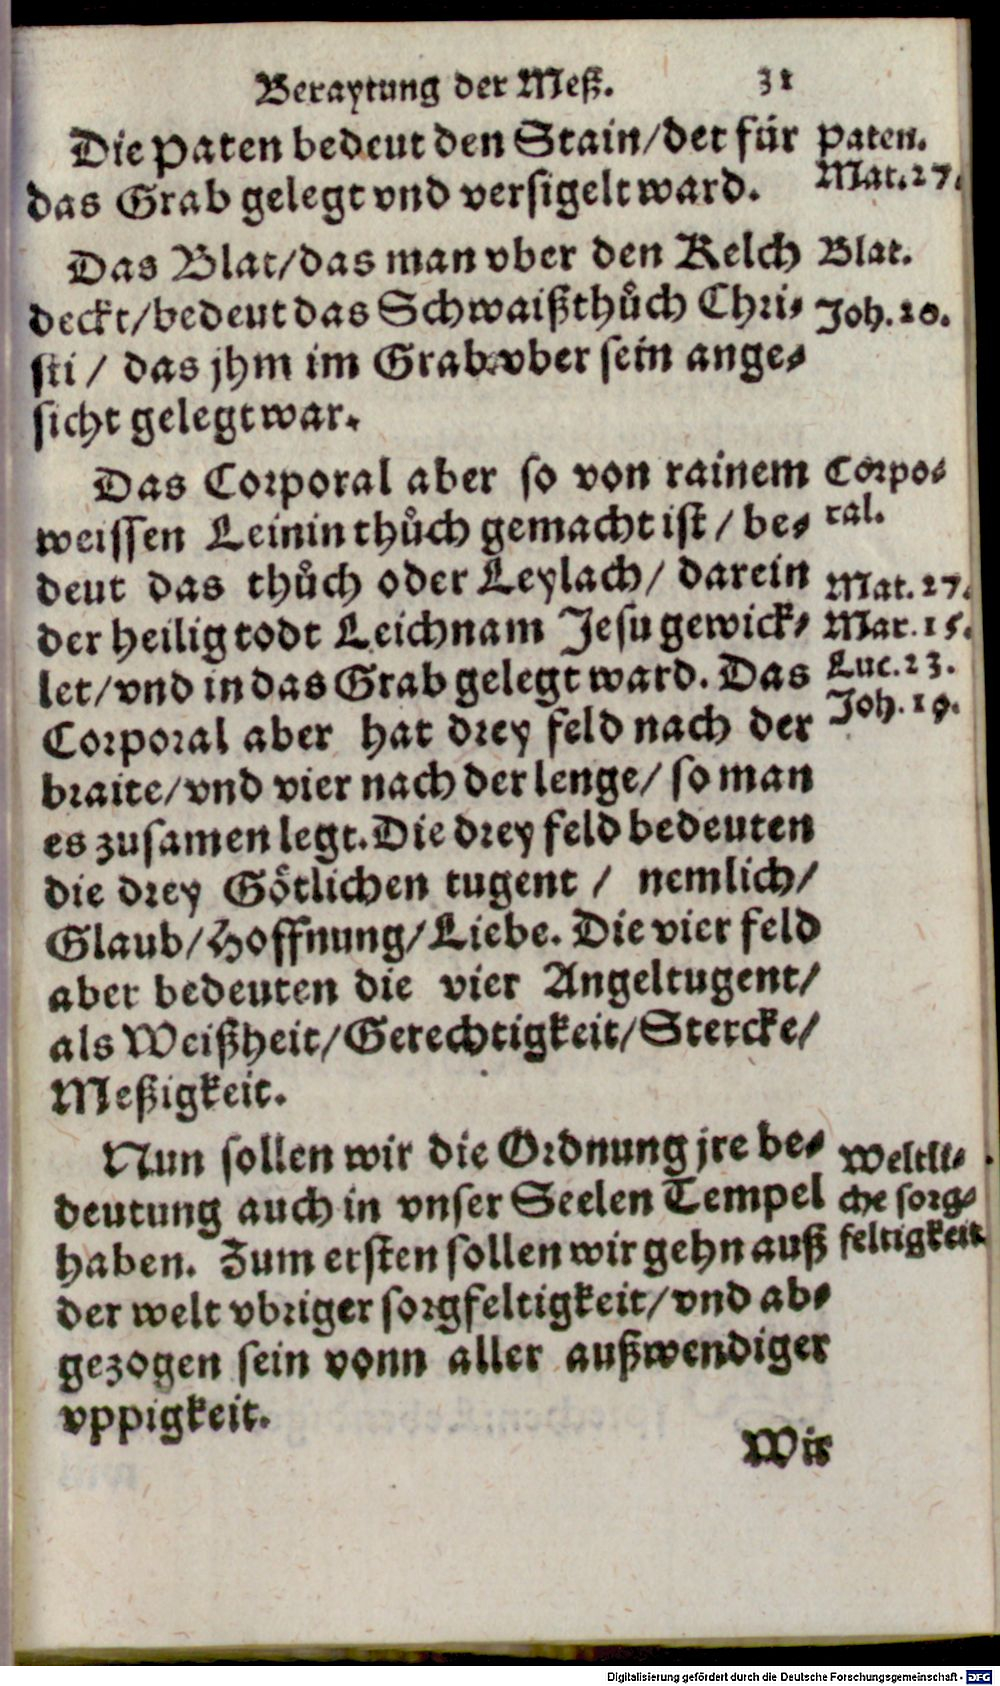 Beraytung der Meß. 31
Die Paten bedeut den Stain/der für
das Grab gelegt vnd versigelt ward.
Paten.
Mat. 27.
Das Blat/das man vber den Kelch
deckt/bedeut das Schwaißthůch Chri-
sti / das jhm im Grab vber sein ange-
sicht gelegt war.
Blat.
Joh. 20.
Das Corporal aber so von rainem
weissen Leinin thůch gemacht ist / be-
deut das thůch oder Leylach/ darein
der heilig todt Leichnam Jesu gewick-
let/vnd in das Grab gelegt ward. Das
Corporal aber hat drey feld nach der
braite/vnd vier nach der lenge/ so man
es zusamen legt. Die drey feld bedeuten
die drey Götlichen tugent / nemlich/
Glaub/Hoffnung/Liebe. Die vier feld
aber bedeuten die vier Angeltugent/
als Weißheit/Gerechtigkeit/Stercke/
Meßigkeit.
Corpo-
ral.
Mat. 27.
Mar. 15.
Luc. 23.
Joh. 19.
Nun sollen wir die Ordnung jre be-
deutung auch in vnser Seelen Tempel
haben. Zum ersten sollen wir gehn auß
der welt vbriger sorgfeltigkeit/vnd ab-
gezogen sein vonn aller außwendiger
vppigkeit.
Weltli-
che sorg-
feltigkeit
Wir
Digitalisierung gefördert durch die Deutsche Forschungsgemeinschaft - DFG